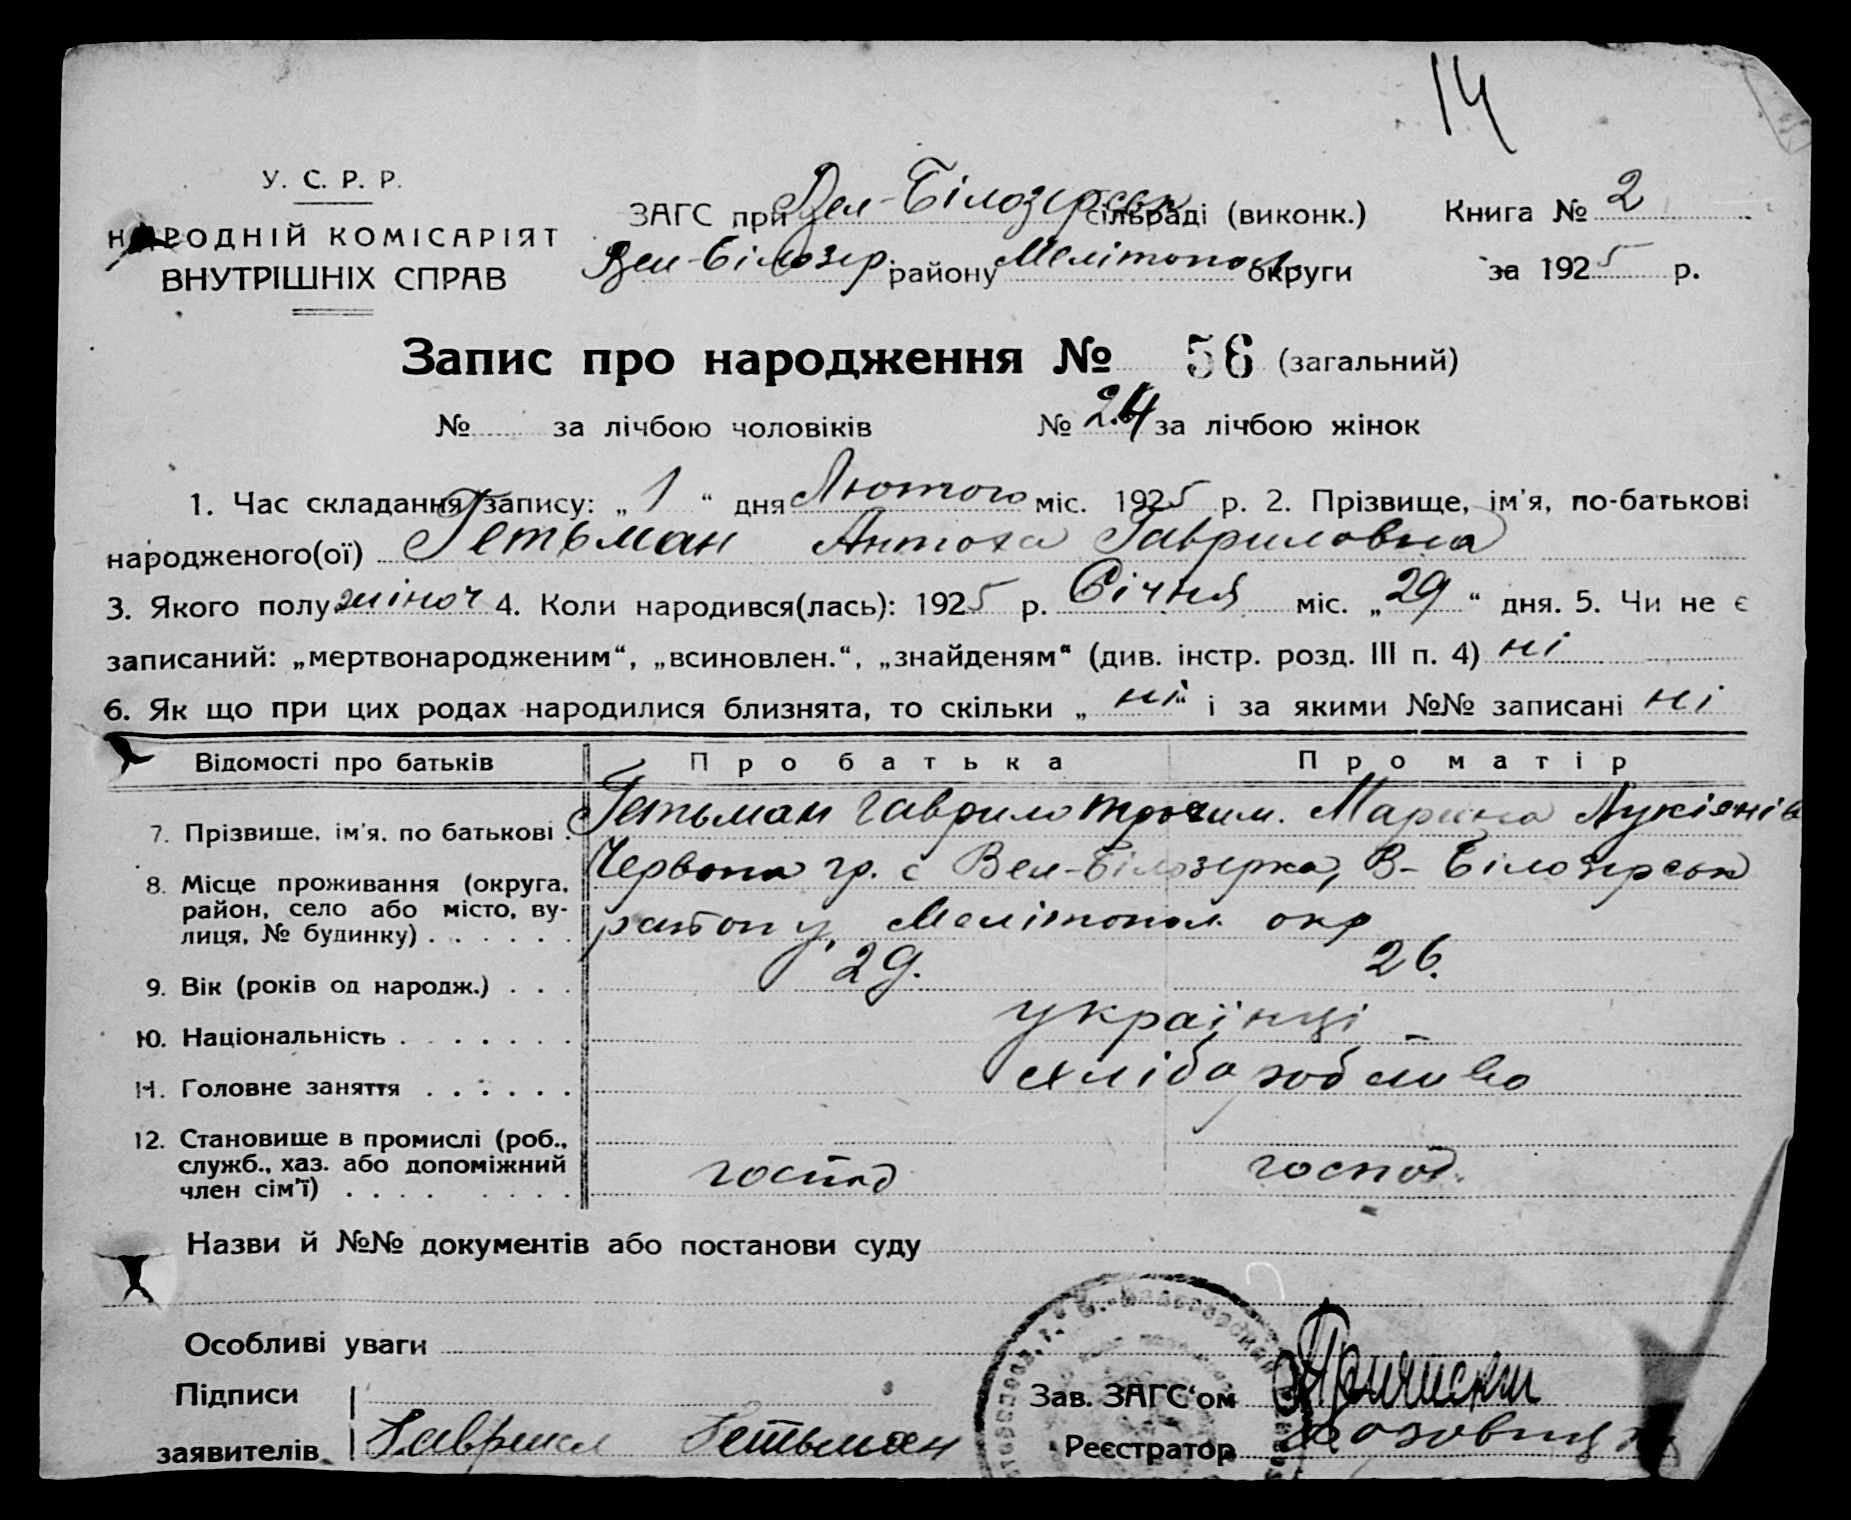 14
У. С. Р. Р.
НАРОДНІЙ КОМІСАРІЯТ
ВНУТРІШНІХ СПРАВ
ЗАГС при Вел-Білозерськ сільраді (виконк.) Книга № 2
Вел-Білозер. району Мелітопол. округи за 1925 р.
Запис про народження № 56 (загальний)
№ за лічбою чоловіків № 24 за лічбою жінок
1. Час складання запису: „ 1 “ дня Лютого міс. 1925 р. 2. Прізвище, ім'я, по-батькові
народженого(ої) Гетьман Гавриловна
3. Якого полу жіноч 4. Коли народився(лась): 1925 р. Січня міс. „ 29 “ дня. 5. Чи не є
записаний: „мертвонародженим“, „всиновлен.“, „знайденям“ (див. інстр. розд. III п. 4) ні
6. Як що при цих родах народилися близнята, то скільки „ ні “ і за якими №№ записані ні
Відомості про батьків Про батька Про матір
7. Прізвище, ім'я, по батькові . Гетьман Гаврило Трохим. Марина Лукіянів
8. Місце проживання (округа, район, село або місто, вулиця, № будинку) . . . . . . Червона гр. с Вел-Білозерка, В-Білозерськ
району Мелітопол. окр
9. Вік (років од народж.) . . . 29. 26.
10. Національність . . . . . . . українці
11. Головне заняття . . . . . .
12. Становище в промислі (роб., служб., хаз. або допоміжний член сім'ї) . . . . господ господ.
Назви й №№ документів або постанови суду
Особливі уваги
Підписи Зав. ЗАГС'ом
заявителів Гаврил Гетьман Реєстратор